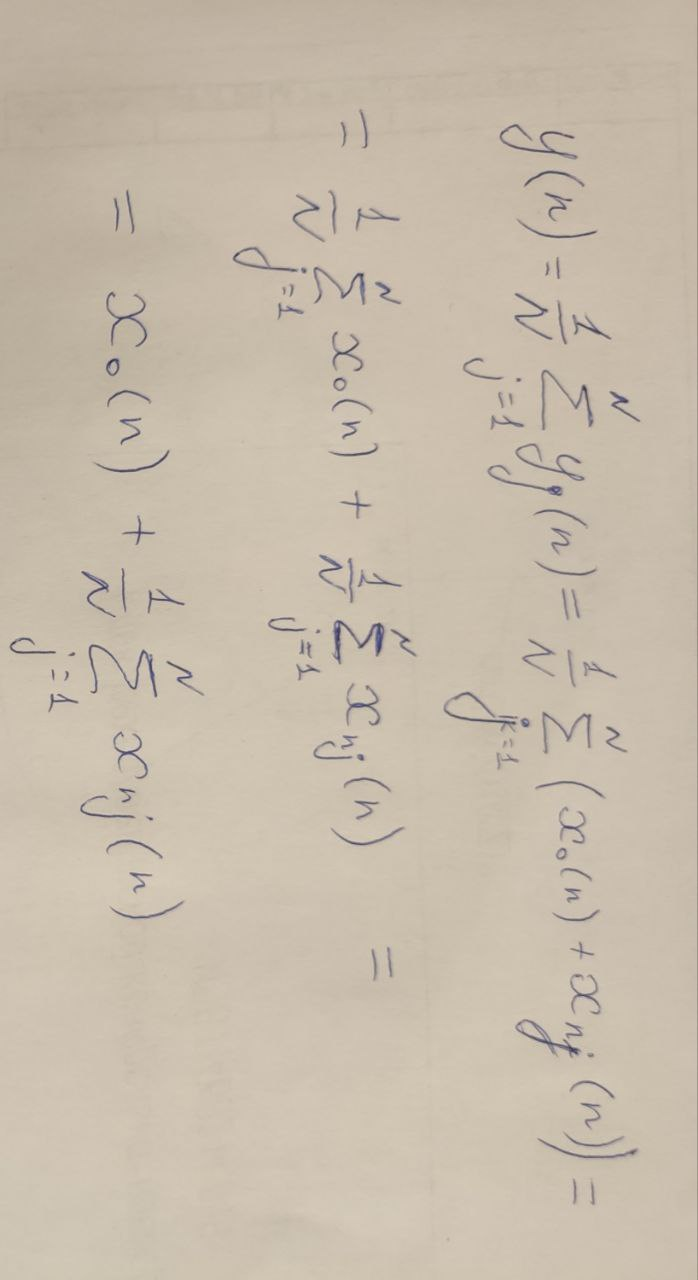 y(n) = 1/N Σ_{j=1}^{N} y_j(n) = 1/N Σ_{j=1}^{N} (x₀(n) + x_{nj}(n)) =
= 1/N Σ_{j=1}^{N} x₀(n) + 1/N Σ_{j=1}^{N} x_{nj}(n) =
= x₀(n) + 1/N Σ_{j=1}^{N} x_{nj}(n)